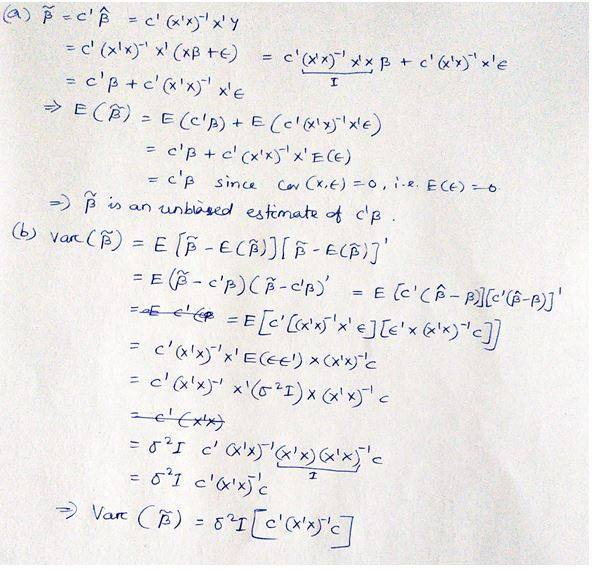 (a) β̃ = c'β̂ = c'(x'x)⁻¹x'y
= c'(x'x)⁻¹x'(xβ+ϵ) = c'(x'x)⁻¹x'xβ + c'(x'x)⁻¹x'ϵ
I
= c'β + c'(x'x)⁻¹x'ϵ
⇒ E(β̃) = E(c'β) + E(c'(x'x)⁻¹x'ϵ)
= c'β + c'(x'x)⁻¹x'E(ϵ)
= c'β since cov(x,ϵ)=0, i.e. E(ϵ)=0.
⇒ β̃ is an unbiased estimate of c'β.
(b) var(β̃) = E[β̃ - E(β̃)][β̃ - E(β̃)]'
= E(β̃ - c'β)(β̃ - c'β)' = E[c'(β̂-β)][c'(β̂-β)]'
= E[c'[(x'x)⁻¹x'ϵ][ϵ'x(x'x)⁻¹c]]
= c'(x'x)⁻¹x'E(ϵϵ')x(x'x)⁻¹c
= c'(x'x)⁻¹x'(σ²I)x(x'x)⁻¹c
= c'(x'x)
= σ²I c'(x'x)⁻¹(x'x)(x'x)⁻¹c
I
= σ²I c'(x'x)⁻¹c
⇒ Var(β̃) = σ²I[c'(x'x)⁻¹c]